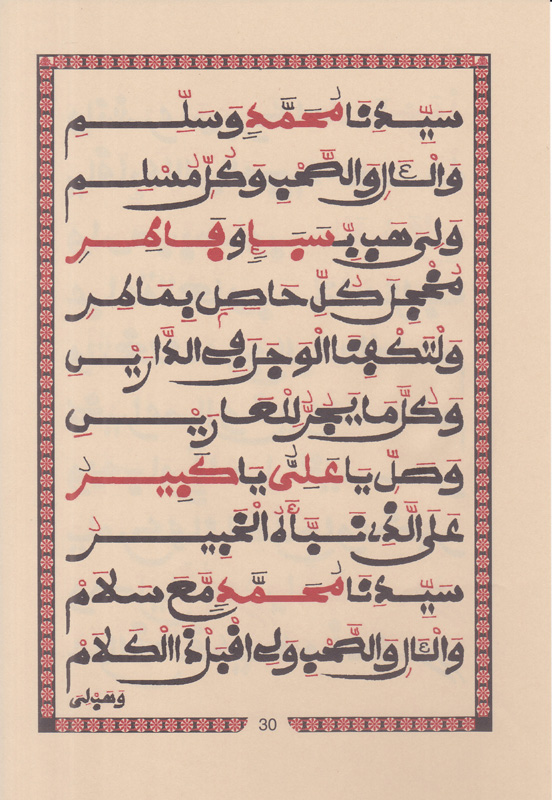 سَيِّدِنَا مُحَمَّدٍ وَسَلِّمِ
وَالْآلِ وَالصَّحْبِ وَكُلِّ مُسْلِمِ
وَلِى هَبْ بِّسَبَإٍ وَفَاطِرِ
مُخْجِلَ كُلِّ بِمَاطِرِ
وَلْتَكْفِنَا الْوَجَلَ فِي الدَّارَيْنِ
وَكُلَّ مَا يَجُرُّ لِلْعَارَيْنِ
وَصَلِّ يَا عَلِىُّ يَا كَبِيرُ
عَلَى الَّذِي نَبَّأَهُ الْخَبِيرُ
سَيِّدِنَا مُحَمَّدٍ مَّعَ سَلَامْ
وَالْآلِ وَالصَّحْبِ وَلِي اقْبَلْ ذَا الْكَلَامْ
وَهَبْ لِى
30